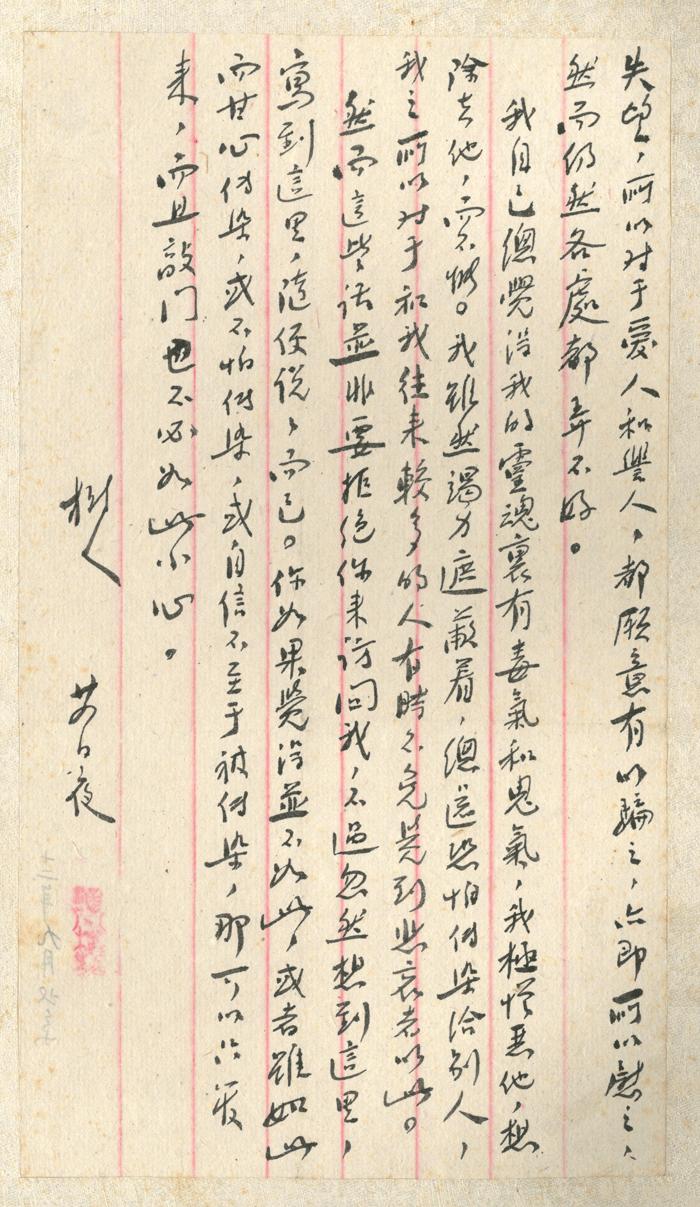 失望，所以对于爱人和讐人，都願意有以騙之，亦即所以慰之，
然而仍然各處都弄不好。
我自己總覺得我的靈魂裏有毒氣和鬼氣，我極憎惡他，想
除去他，而不能。我雖然竭力遮蔽着，總還恐怕传染給别人，
我之所以对于和我往来較多的人有時不免覺到悲哀者以此。
然而這些話並非要拒绝你来訪问我，不過忽然想到這里，
寫到這里，隨便說々而已。你如果覺得並不如此，或者雖如此
而甘心传染，或不怕传染，或自信不至于被传染，那可以只管
来，而且敲门也不必如此小心。
樹人 廿四日夜
十三年九月